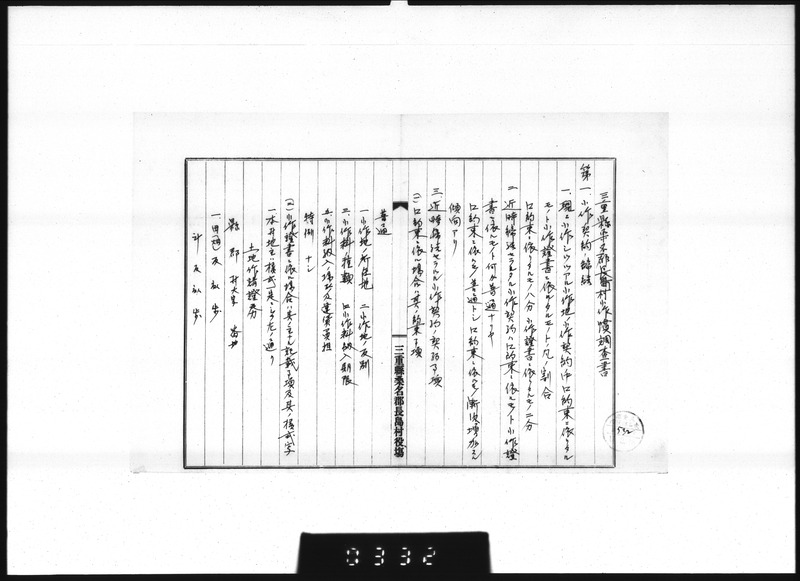 三重縣桑名郡長島村小作慣行調査書
第一、小作契約ノ締結
一、現ニ小作シツツアル小作地ノ小作契約中口約束ニ依リタル
モノト小作證書ニ依リタルモノトノ凡ノ割合
口約束ニ依リタルモノ八分 小作證書ニ依リタルモノ二分
二、近時締結セラルル小作契約ハ口約束ニ依ルモノト小作證
書ニ依ルモノト何カ普通ナリヤ
口約束ニ依ルモノ普通トシ口約束ニ依ルモノ漸次増加スル
傾向アリ
三、近時締結セラルル小作契約ノ契約事項
(イ)口約束ニ依ル場合ハ其ノ約束事項
普通
一、小作地ノ所在地 二、小作地ノ反別
三、小作料ノ種類 四、小作料納入期限
五、小作料納入ノ場所及運賃負担
特例 ナシ
(ロ)小作證書ニ依ル場合ハ其ノ主ナル記載事項及其ノ様式等
一、本村地主ノ様式ヲ見ルニ左ノ通リ
土地作請證券
縣 郡 村大字 番地
一、田(畑) 反 畝 歩
計 反 畝 歩
三重縣桑名郡長島村役場
532
0332